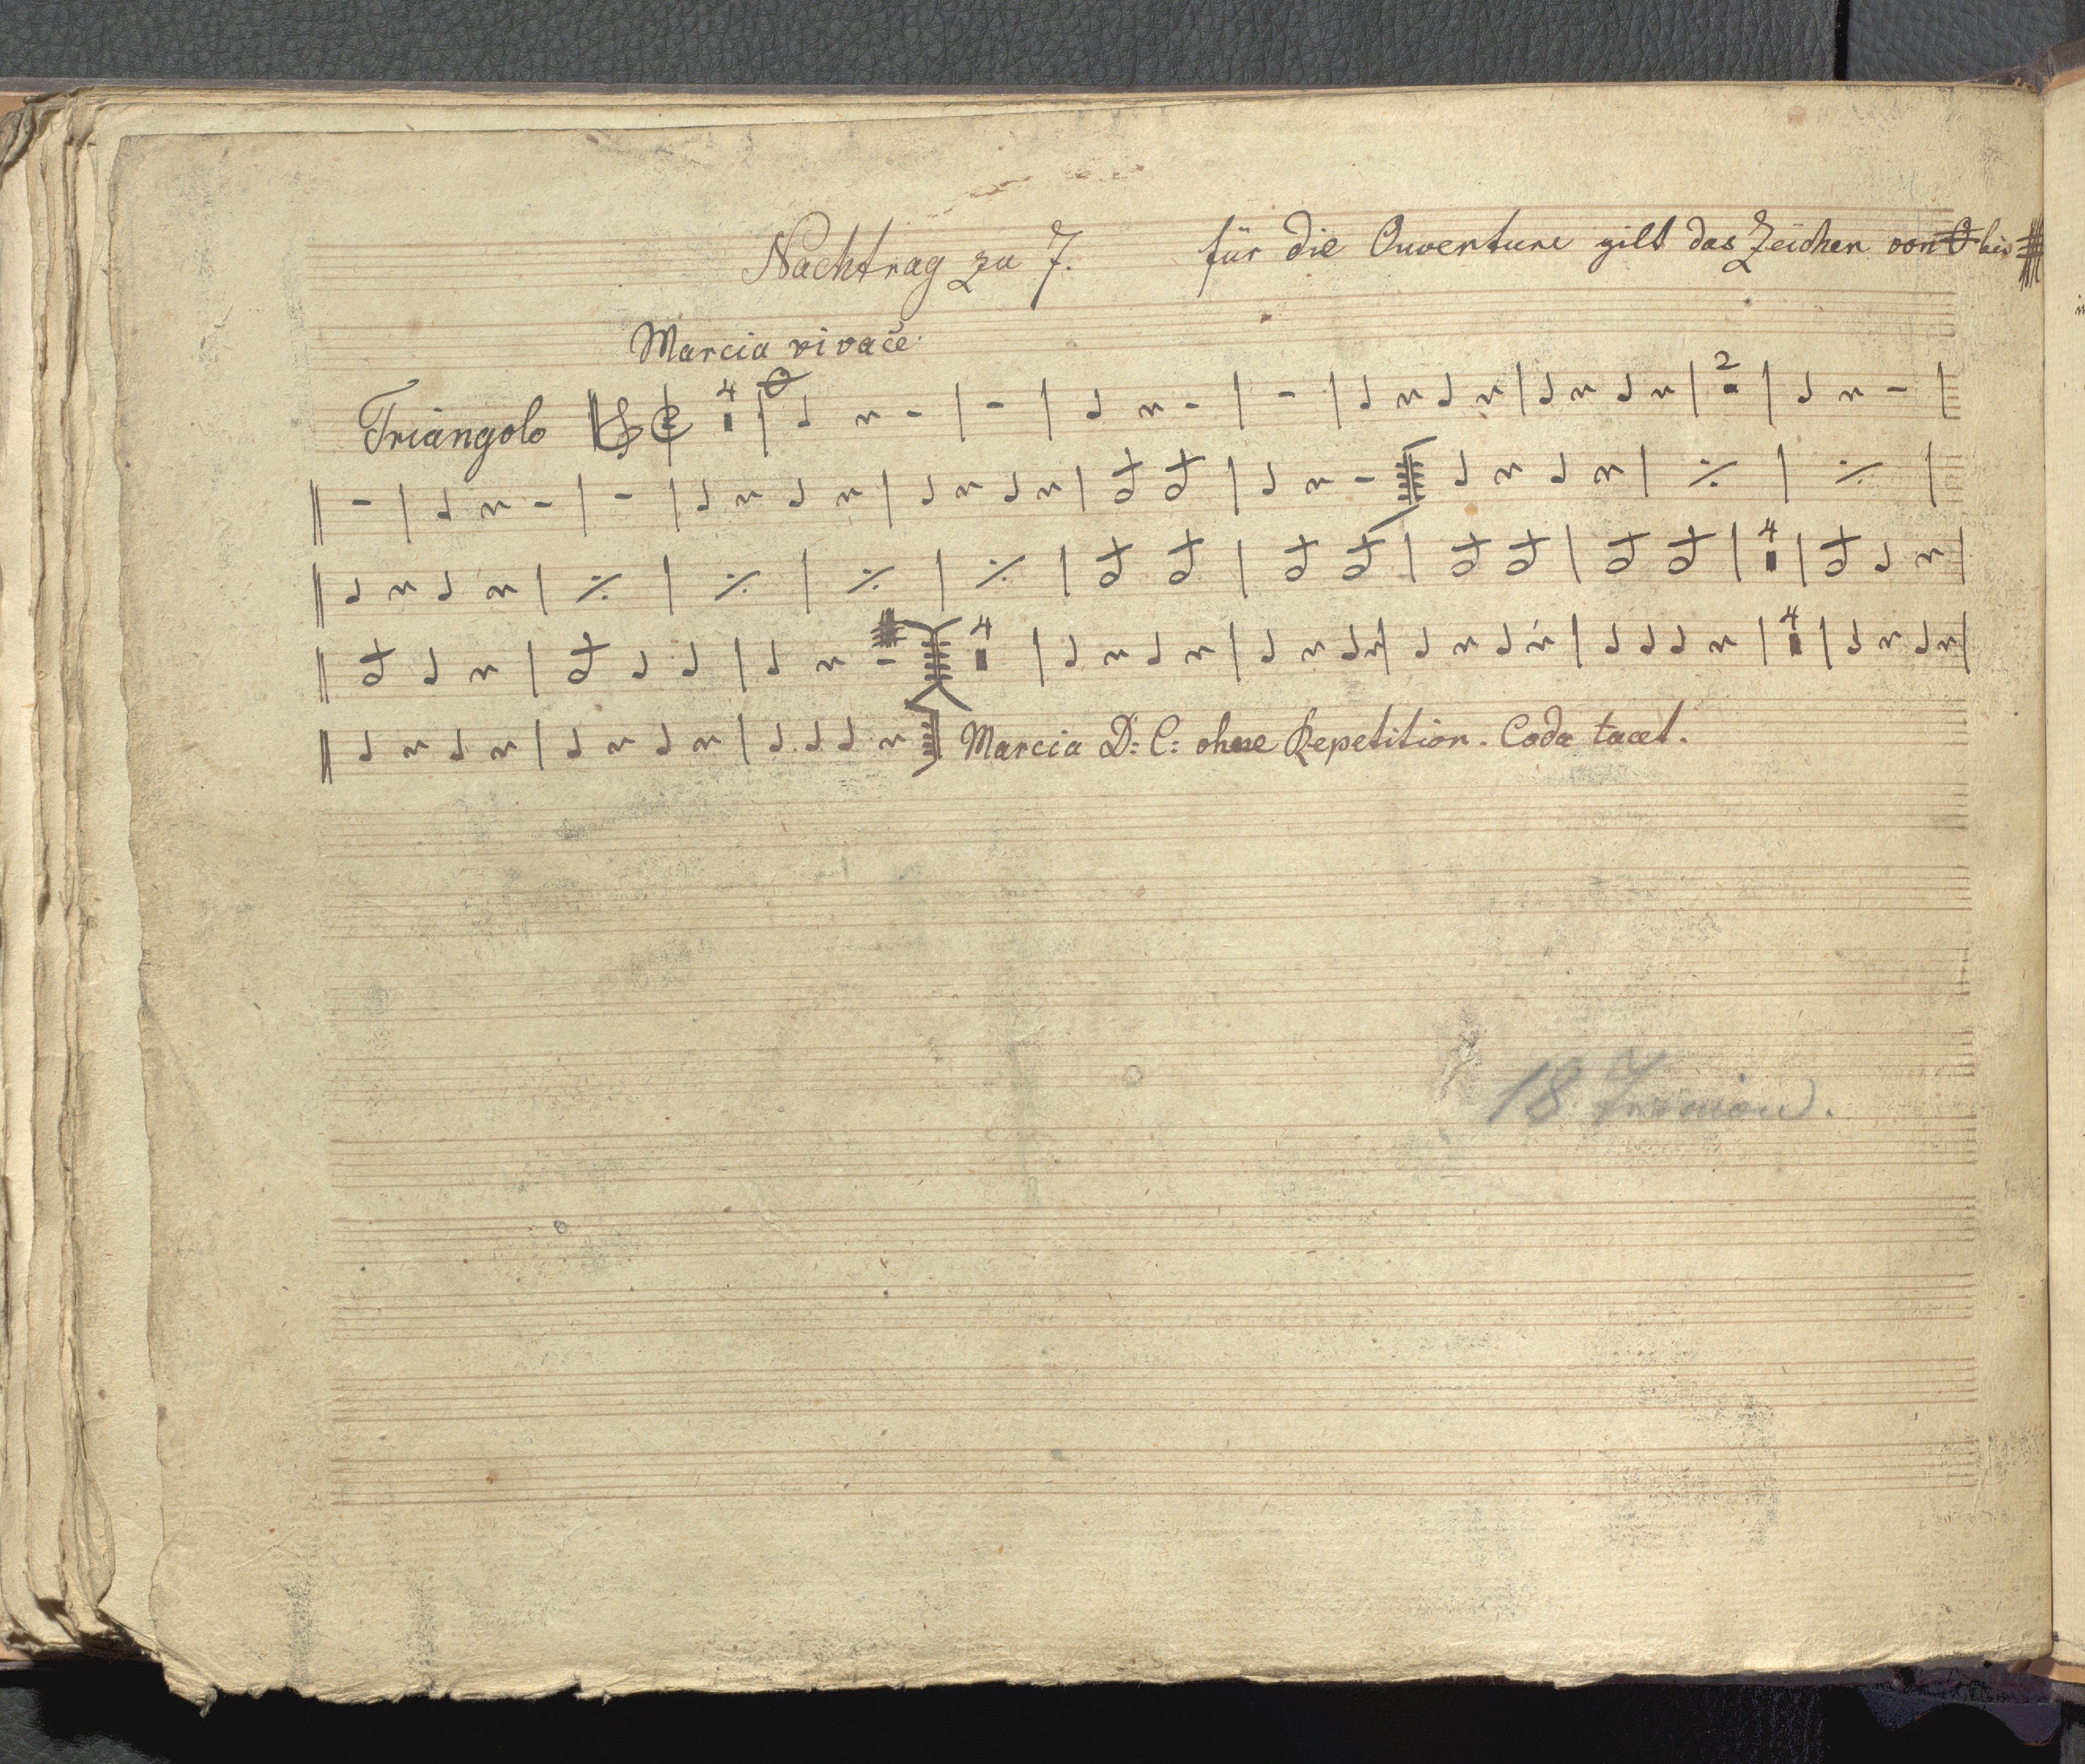 Nachtrag zu 7. für die Ouverture gilt das Zeichen von bis
Marcia vivace
4
Triangolo
2
4
4
4
Marcia D: C: ohne Repetition. Coda tacet.
18